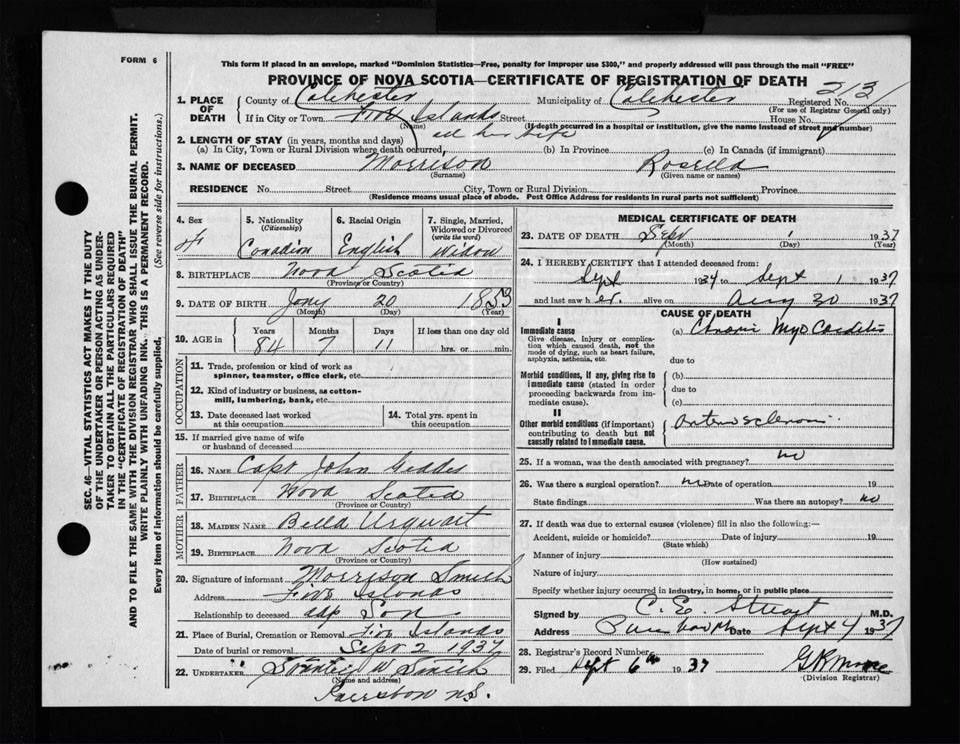 FORM 6
This form if placed in an envelope, marked "Dominion Statistics—Free, penalty for improper use $300," and properly addressed will pass through the mail "FREE"
PROVINCE OF NOVA SCOTIA—CERTIFICATE OF REGISTRATION OF DEATH
213
1. PLACE OF DEATH
County of Colchester Municipality of Colchester Registered No.
(For use of Registrar General only)
If in City or Town Five Islands Street House No.
(Name) (If death occurred in a hospital or institution, give the name instead of street and number)
2. LENGTH OF STAY (in years, months and days) all her life
(a) In City, Town or Rural Division where death occurred, (b) In Province (c) In Canada (if immigrant)
3. NAME OF DECEASED Morrison Rosella
(Surname) (Given name or names)
RESIDENCE No. Street City, Town or Rural Division Province
(Residence means usual place of abode. Post Office Address for residents in rural parts not sufficient)
4. Sex 5. Nationality (Citizenship) 6. Racial Origin 7. Single, Married, Widowed or Divorced (write the word)
F Canadian English Widow
8. BIRTHPLACE Nova Scotia
(Province or Country)
9. DATE OF BIRTH Jany 20 1853
(Month) (Day) (Year)
10. AGE in Years Months Days If less than one day old
84 7 11 hrs. or min.
OCCUPATION
11. Trade, profession or kind of work as spinner, teamster, office clerk, etc.
12. Kind of industry or business, as cotton-mill, lumbering, bank, etc.
13. Date deceased last worked at this occupation 14. Total yrs. spent in this occupation
15. If married give name of wife or husband of deceased
FATHER
16. NAME Capt John Geddes
17. BIRTHPLACE Nova Scotia
(Province or Country)
MOTHER
18. MAIDEN NAME Bella Urquart
19. BIRTHPLACE Nova Scotia
(Province or Country)
20. Signature of informant Morrison Smith
Address Five Islands
Relationship to deceased adp Son
21. Place of Burial, Cremation or Removal Five Islands
Date of burial or removal Sept 2 1937
22. UNDERTAKER W Smith
(Name and address)
N.S.
MEDICAL CERTIFICATE OF DEATH
23. DATE OF DEATH Sept 1 1937
(Month) (Day) (Year)
24. I HEREBY CERTIFY that I attended deceased from:
Sept 1934 to Sept 1 1937
and last saw her alive on Aug 30 1937
CAUSE OF DEATH
I
Immediate cause (a) Chronic Myocarditis
Give disease, injury or complication which caused death, not the mode of dying, such as heart failure, asphyxia, asthenia, etc.
due to
Morbid conditions, if any, giving rise to immediate cause (stated in order proceeding backwards from immediate cause).
(b)
due to
(c)
II
Other morbid conditions (if important) contributing to death but not causally related to immediate cause.
Arteriosclerosis
25. If a woman, was the death associated with pregnancy? no
26. Was there a surgical operation? no Date of operation 19
State findings Was there an autopsy? no
27. If death was due to external causes (violence) fill in also the following:—
Accident, suicide or homicide? Date of injury 19
(State which)
Manner of injury
(How sustained)
Nature of injury
Specify whether injury occurred in industry, in home, or in public place
Signed by C. E. Stuart M.D.
Address Date Sept 4 1937
28. Registrar's Record Number
29. Filed Sept 6th 1937
(Division Registrar)
SEC. 46—VITAL STATISTICS ACT MAKES IT THE DUTY
OF THE UNDERTAKER OR PERSON ACTING AS UNDER-
TAKER TO OBTAIN ALL THE PARTICULARS REQUIRED
IN THE "CERTIFICATE OF REGISTRATION OF DEATH"
AND TO FILE THE SAME WITH THE DIVISION REGISTRAR WHO SHALL ISSUE THE BURIAL PERMIT.
WRITE PLAINLY WITH UNFADING INK. THIS IS A PERMANENT RECORD.
Every item of information should be carefully supplied. (See reverse side for instructions.)